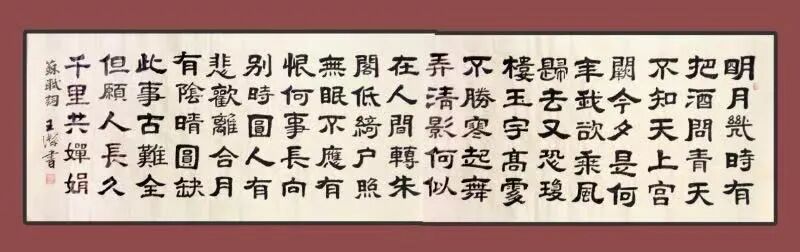 明月幾時有
把酒問青天
不知天上宮
闕今夕是何
年我欲乘風
歸去又恐瓊
樓玉宇高處
不勝寒起舞
弄清影何似
在人間轉朱
閣低綺户照
無眠不應有
恨何事長向
別時圓人有
悲歡離合月
有陰晴圓缺
此事古難全
但願人長久
千里共嬋娟
蘇軾詞 王 書